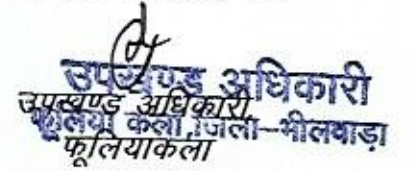 उपखण्ड अधिकारी
उपखण्ड अधिकारी
फूलिया कलां, जिला-भीलवाड़ा
फूलियाकलां